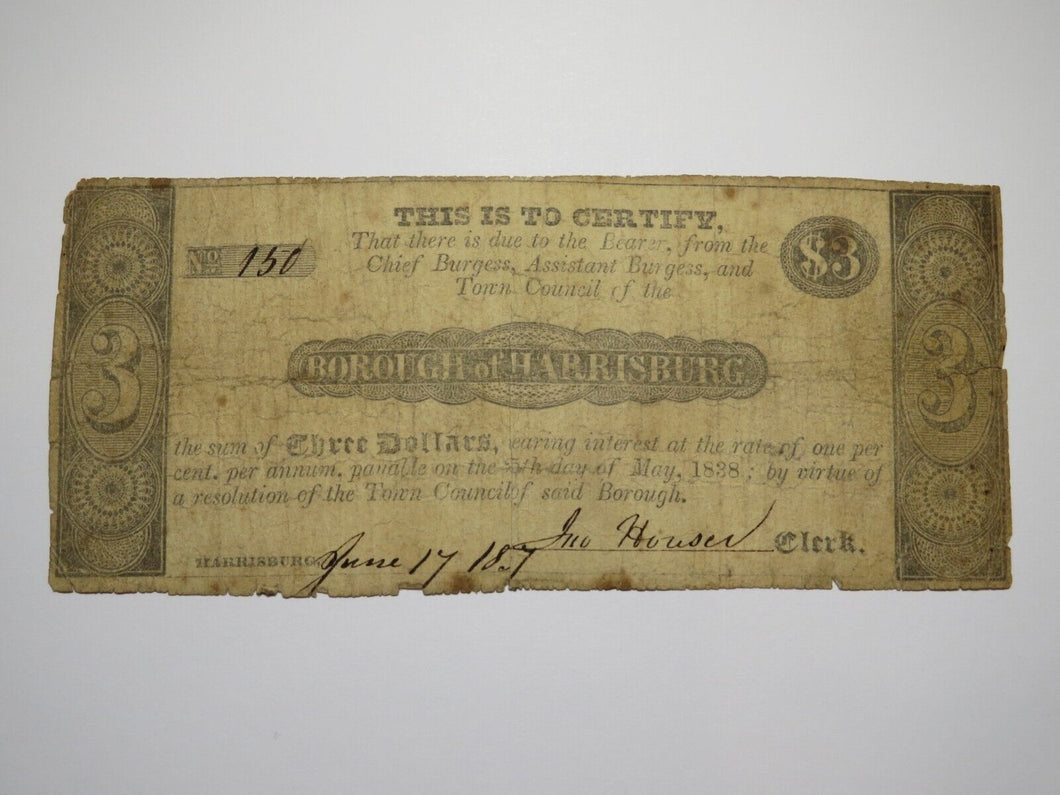 THIS IS TO CERTIFY,
That there is due to the Bearer, from the
Chief Burgess, Assistant Burgess, and
Town Council of the
$3
No. 150
BOROUGH of HARRISBURG
3
3
the sum of Three Dollars, earing interest at the rate of one per
cent. per annum, payable on the 5th day of May, 1838; by virtue of
a resolution of the Town Council of said Borough.
Jno Houser Clerk.
HARRISBURG, June 17